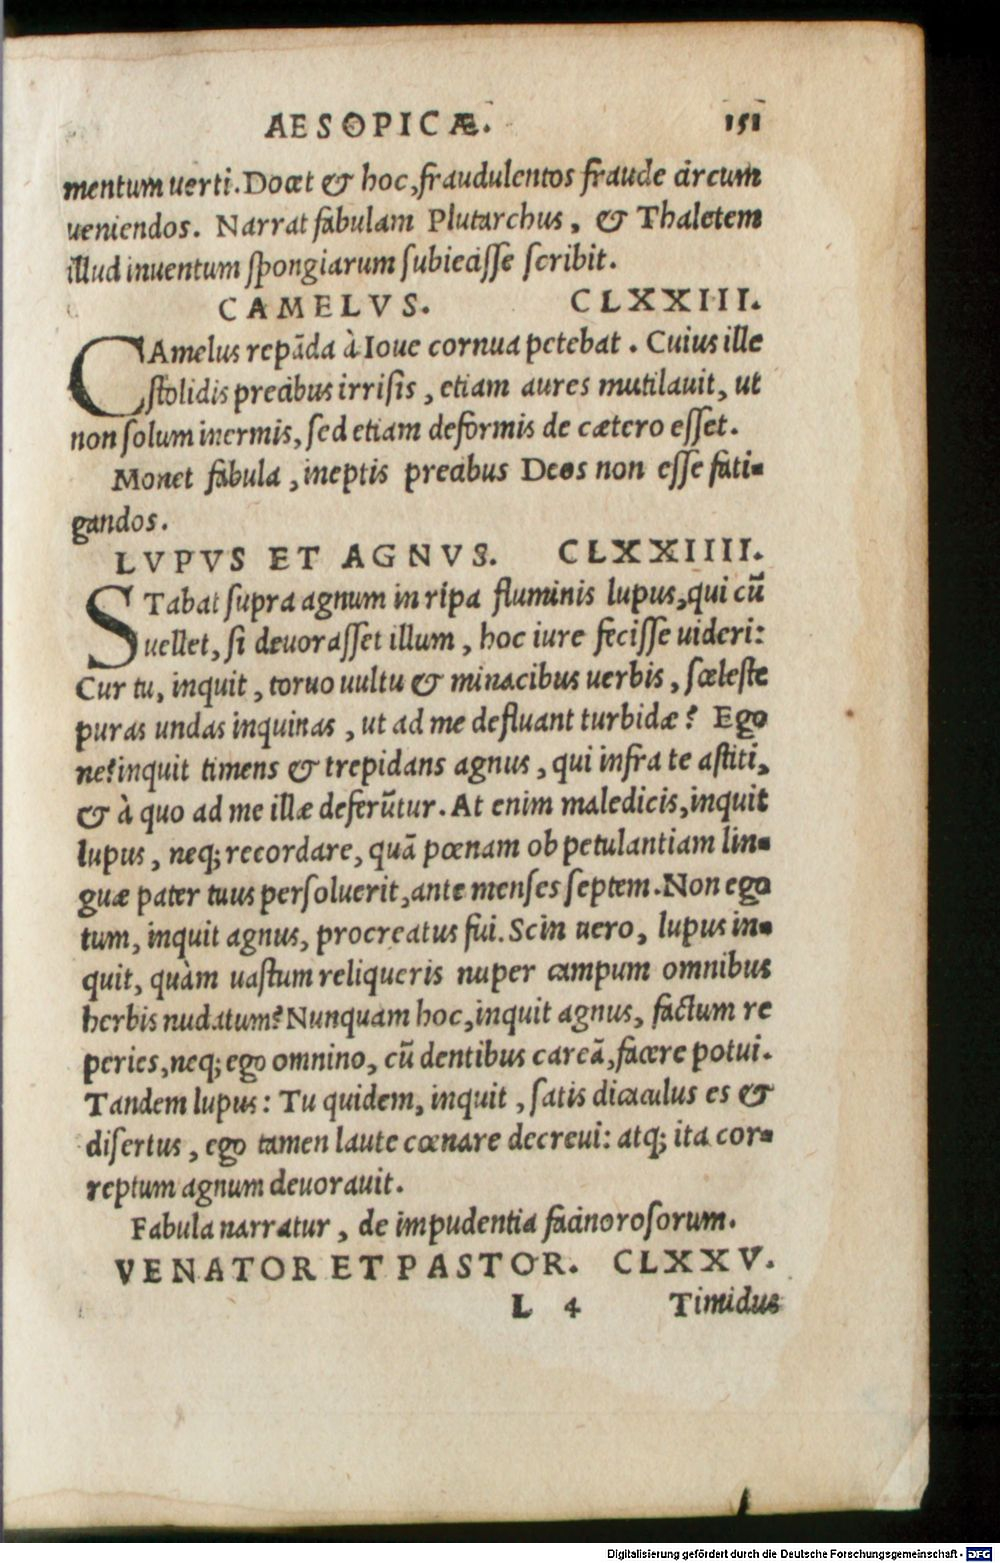 AESOPICÆ. 151
mentum uerti. Docet & hoc, fraudulentos fraude circum
ueniendos. Narrat fabulam Plutarchus, & Thaletem
illud inuentum spongiarum subiecisse scribit.
CAMELVS. CLXXIII.
CAmelus repāda à Ioue cornua petebat. Cuius ille
stolidis precibus irrisis, etiam aures mutilauit, ut
non solum inermis, sed etiam deformis de cætero esset.
Monet fabula, ineptis precibus Deos non esse fati-
gandos.
LVPVS ET AGNVS. CLXXIIII.
STabat supra agnum in ripa fluminis lupus, qui cū
uellet, si deuorasset illum, hoc iure fecisse uideri:
Cur tu, inquit, toruo uultu & minacibus uerbis, sceleste
puras undas inquinas, ut ad me defluant turbidæ? Ego
ne? inquit timens & trepidans agnus, qui infra te astiti,
& à quo ad me illæ deferūtur. At enim maledicis, inquit
lupus, neq; recordare, quā pœnam ob petulantiam lin-
guæ pater tuus persoluerit, ante menses septem. Non ego
tum, inquit agnus, procreatus fui. Scin uero, lupus in-
quit, quàm uastum reliqueris nuper campum omnibus
herbis nudatum? Nunquam hoc, inquit agnus, factum re
peries, neq; ego omnino, cū dentibus careā, facere potui.
Tandem lupus: Tu quidem, inquit, satis dicaculus es &
disertus, ego tamen laute cœnare decreui: atq; ita cor-
reptum agnum deuorauit.
Fabula narratur, de impudentia facinorosorum.
VENATOR ET PASTOR. CLXXV.
L 4 Timidus
Digitalisierung gefördert durch die Deutsche Forschungsgemeinschaft - DFG